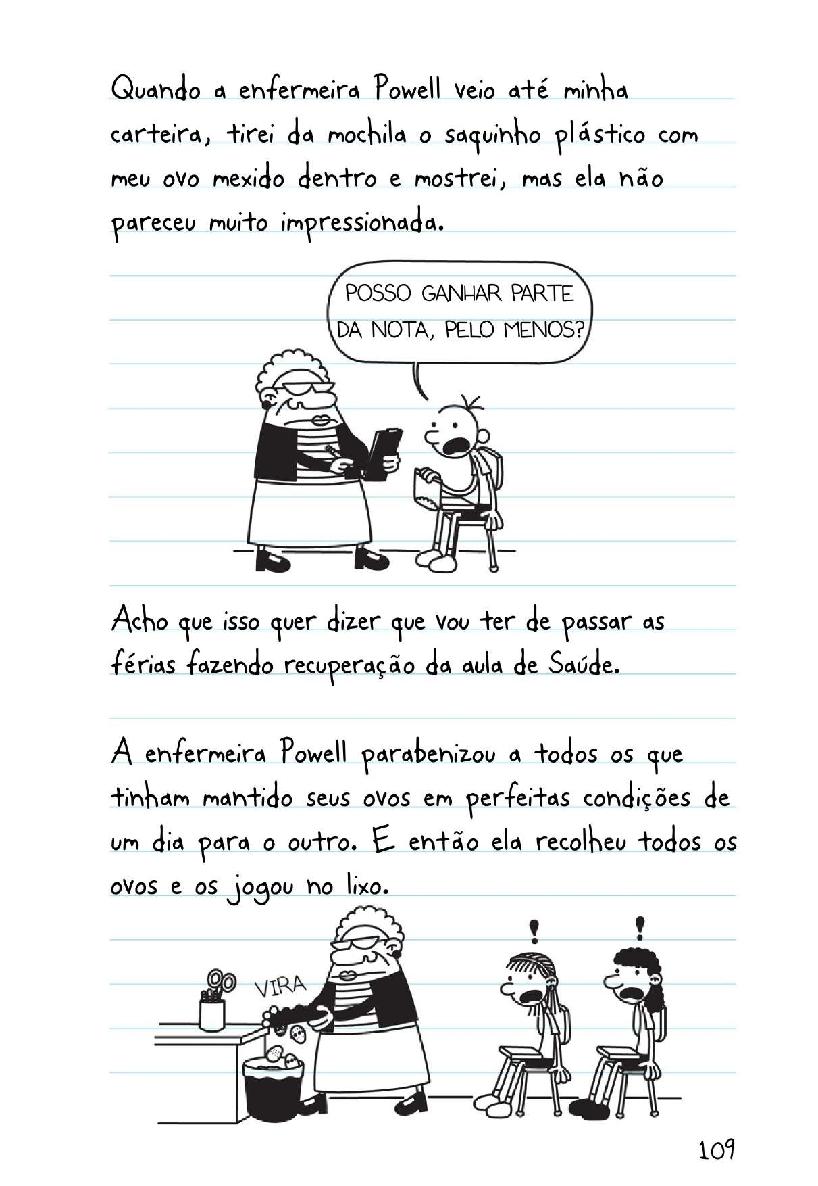 Quando a enfermeira Powell veio até minha
carteira, tirei da mochila o saquinho plástico com
meu ovo mexido dentro e mostrei, mas ela não
pareceu muito impressionada.
POSSO GANHAR PARTE
DA NOTA, PELO MENOS?
Acho que isso quer dizer que vou ter de passar as
férias fazendo recuperação da aula de Saúde.
A enfermeira Powell parabenizou a todos os que
tinham mantido seus ovos em perfeitas condições de
um dia para o outro. E então ela recolheu todos os
ovos e os jogou no lixo.
! !
VIRA
109